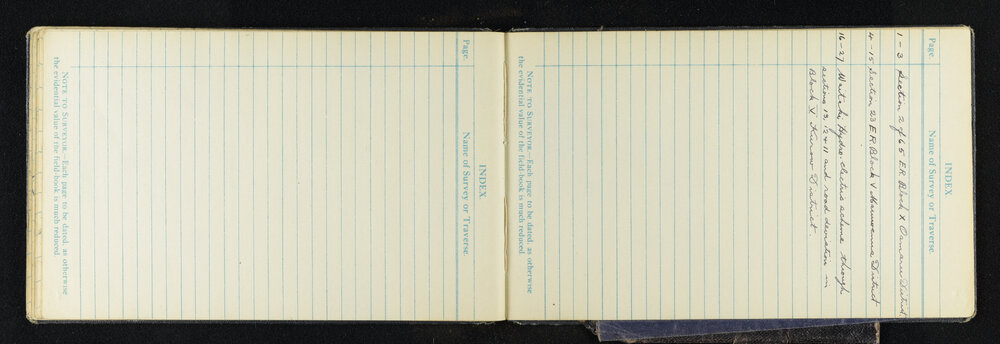 INDEX.
Page. Name of Survey or Traverse.
1-3 Section 2 of 65 E.R. Block X Oamaru District
4-15 Section 23 E.R. Block V District
16-27 Waitaki Hydro-electric scheme through
sections 13, 12 & 11 and road deviation in
Block V District.
NOTE TO SURVEYOR.—Each page to be dated, as otherwise
the evidential value of the field-book is much reduced.
INDEX.
Page. Name of Survey or Traverse.
NOTE TO SURVEYOR.—Each page to be dated, as otherwise
the evidential value of the field-book is much reduced.